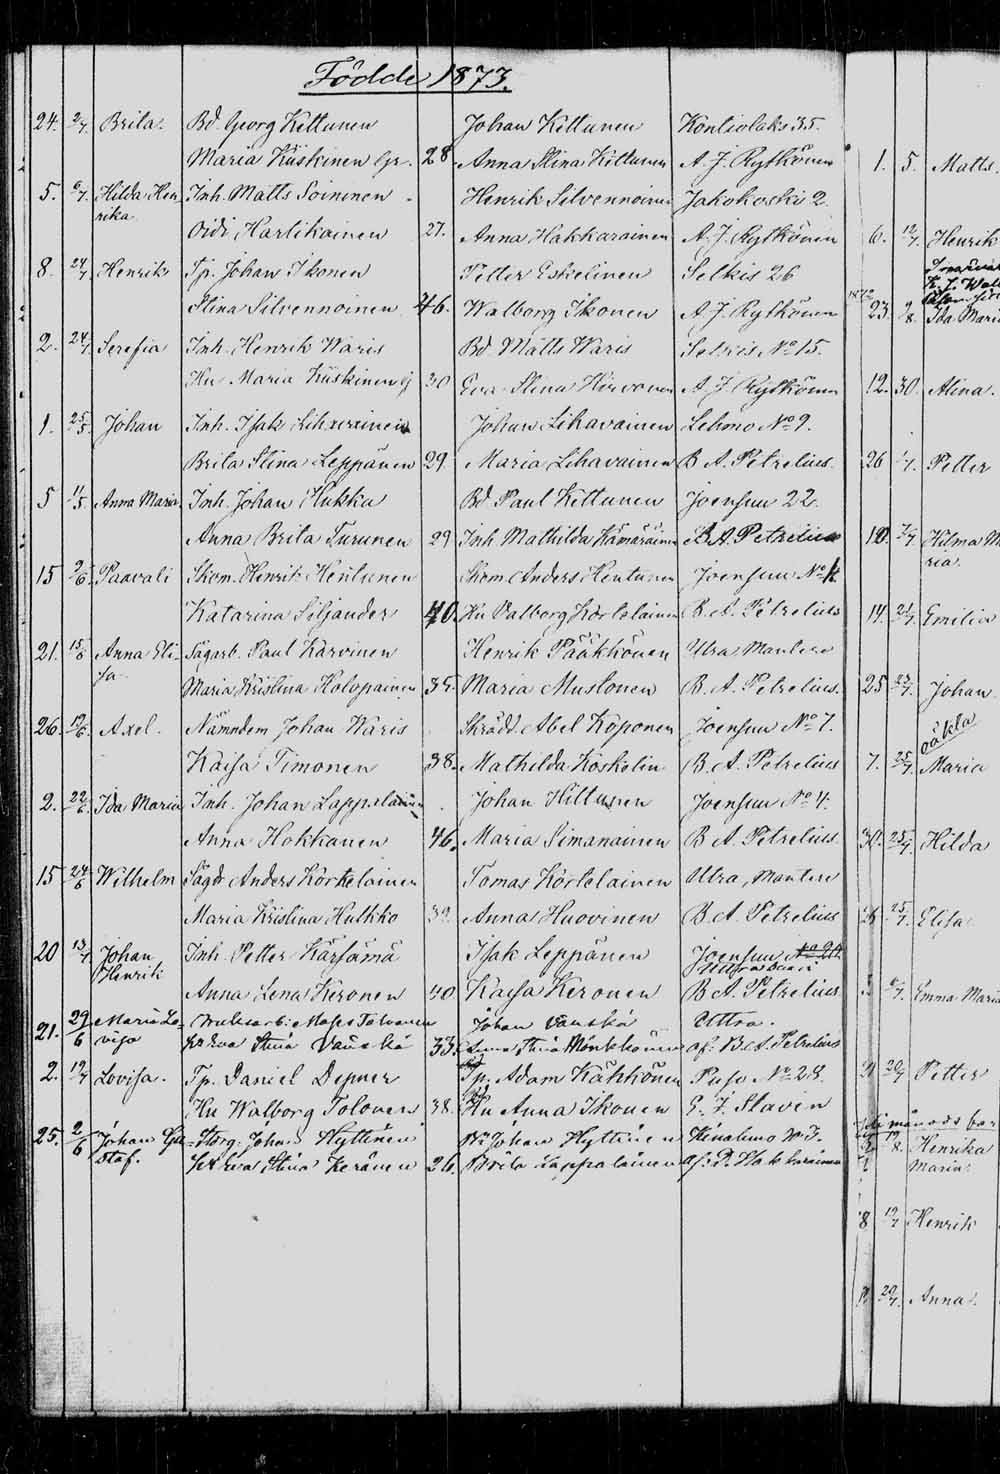 Födde 1873.
24. 2/7. Brita. Bd. Georg Kettunen Johan Kettunen Kontiolaks 35.
Maria Kiiskinen Gr. 28 Anna Stina Kettunen A. J. Rytkönen
5. 6/7. Hilda Hen- Inh. Matts Soininen Henrik Silvennoinen Jakokoski 2
rika
Oidi Hartikainen 27. Anna Hakkarainen A. J. Rytkönen
8. 24/7 Henrik Tp. Johan Ikonen Petter Eskelinen Selkis 26
Stina Silvennoinen 46. Walborg Ikonen A. J. Rytkönen
2. 24/7 Serefia Inh. Henrik Waris Bd. Matts Waris Selkis No 15.
Hu Maria Kiiskinen 30 Eva Stina Hirvonen A. J. Rytkönen
1. 25/5. Johan Inh. Isak Johan Lihavainen Lehmo No 9.
Brita Stina Leppänen 29. Maria Lihavainen B. A. Petrelius.
5 11/5. Anna Maria Inh. Johan Hukka Bd Paul Kettunen Joensuu 22.
Anna Brita Turunen 29 Inh. Mathilda Hämäräinen B. A. Petrelius
15 2/6. Paavali Skom. Henrik Hentunen Skom. Anders Hentunen Joensuu No
Katarina Siljander 40. Hu Valborg Körtelainen B. A. Petrelius
21. 15/6 Anna Eli- Sågarb. Paul Karvinen Henrik Pääkkönen Utra Mantere
sa
Maria Kristina Holopainen 35. Maria Mustonen B. A. Petrelius.
26. 19/6. Axel. Nämndem Johan Waris Skrädd. Abel Koponen Joensuu No 7.
Kaisa Timonen 38. Mathilda Koskelin B. A. Petrelius
2. 22/6. Ida Maria Inh. Johan Lappalainen Johan Hiltunen Joensuu No 4.
Anna Hokkanen 46. Maria Simanainen B. A. Petrelius.
15 24/6 Wilhelm Sågdr Anders Körtelainen Tomas Körtelainen Utra, Mantere
Maria Kristina Hulkko 32. Anna Huovinen B. A. Petrelius
20 13/7 Johan Inh. Petter Kärsämä Isak Leppänen Joensuu
Henrik
Anna Lena Keronen 40 Kaisa Keronen B. A. Petrelius
21. 29/6 Maria Lo- Bruksarb: Moses Tolvanen Johan Vänskä Uttra.
visa Eva Stina Vänskä 33. Anna Stina Mönkkönen af. B. A. Petrelius
2. 12/7 Lovisa. Tp. Daniel Depner Tp. Adam Käkkönen Puso No 28.
Hu Walborg Tolonen 38. Hu Anna Ikonen G. F. Stavén
25. 2/6 Johan Gu- Torp. Johan Hyttinen Johan Hyttinen Kinalmo No 3.
staf. Eva Stina Keränen 26. Brita Lappalainen af: P. Hakkarainen
1. 5. Matts.
6. 12/7. Henrik
1872
23. 2/8. Ida Maria
12. 30. Alina.
26 1/7. Petter
10. 7/7 Hilma Ma
ria.
14. 21/7. Emilia
25 23/7. Johan
Räkla
7. 25/7. Maria
30. 25/7. Hilda
26 25/7. Elisa
6/7. Emma Maria
20/7. Petter
månads
8. Henrika
Maria
8 19/7 Henrik
20/7. Anna.